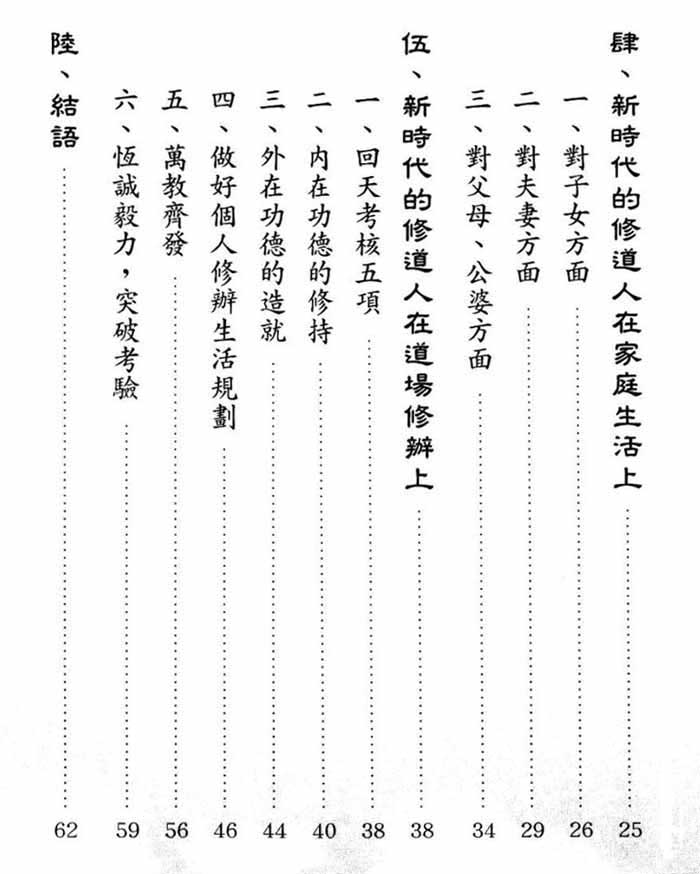 肆、新時代的修道人在家庭生活上 25
一、對子女方面 26
二、對夫妻方面 29
三、對父母、公婆方面 34
伍、新時代的修道人在道場修辦上 38
一、回天考核五項 38
二、內在功德的修持 40
三、外在功德的造就 44
四、做好個人修辦生活規劃 46
五、萬教齊發 56
六、恆誠毅力,突破考驗 59
陸、結語 62